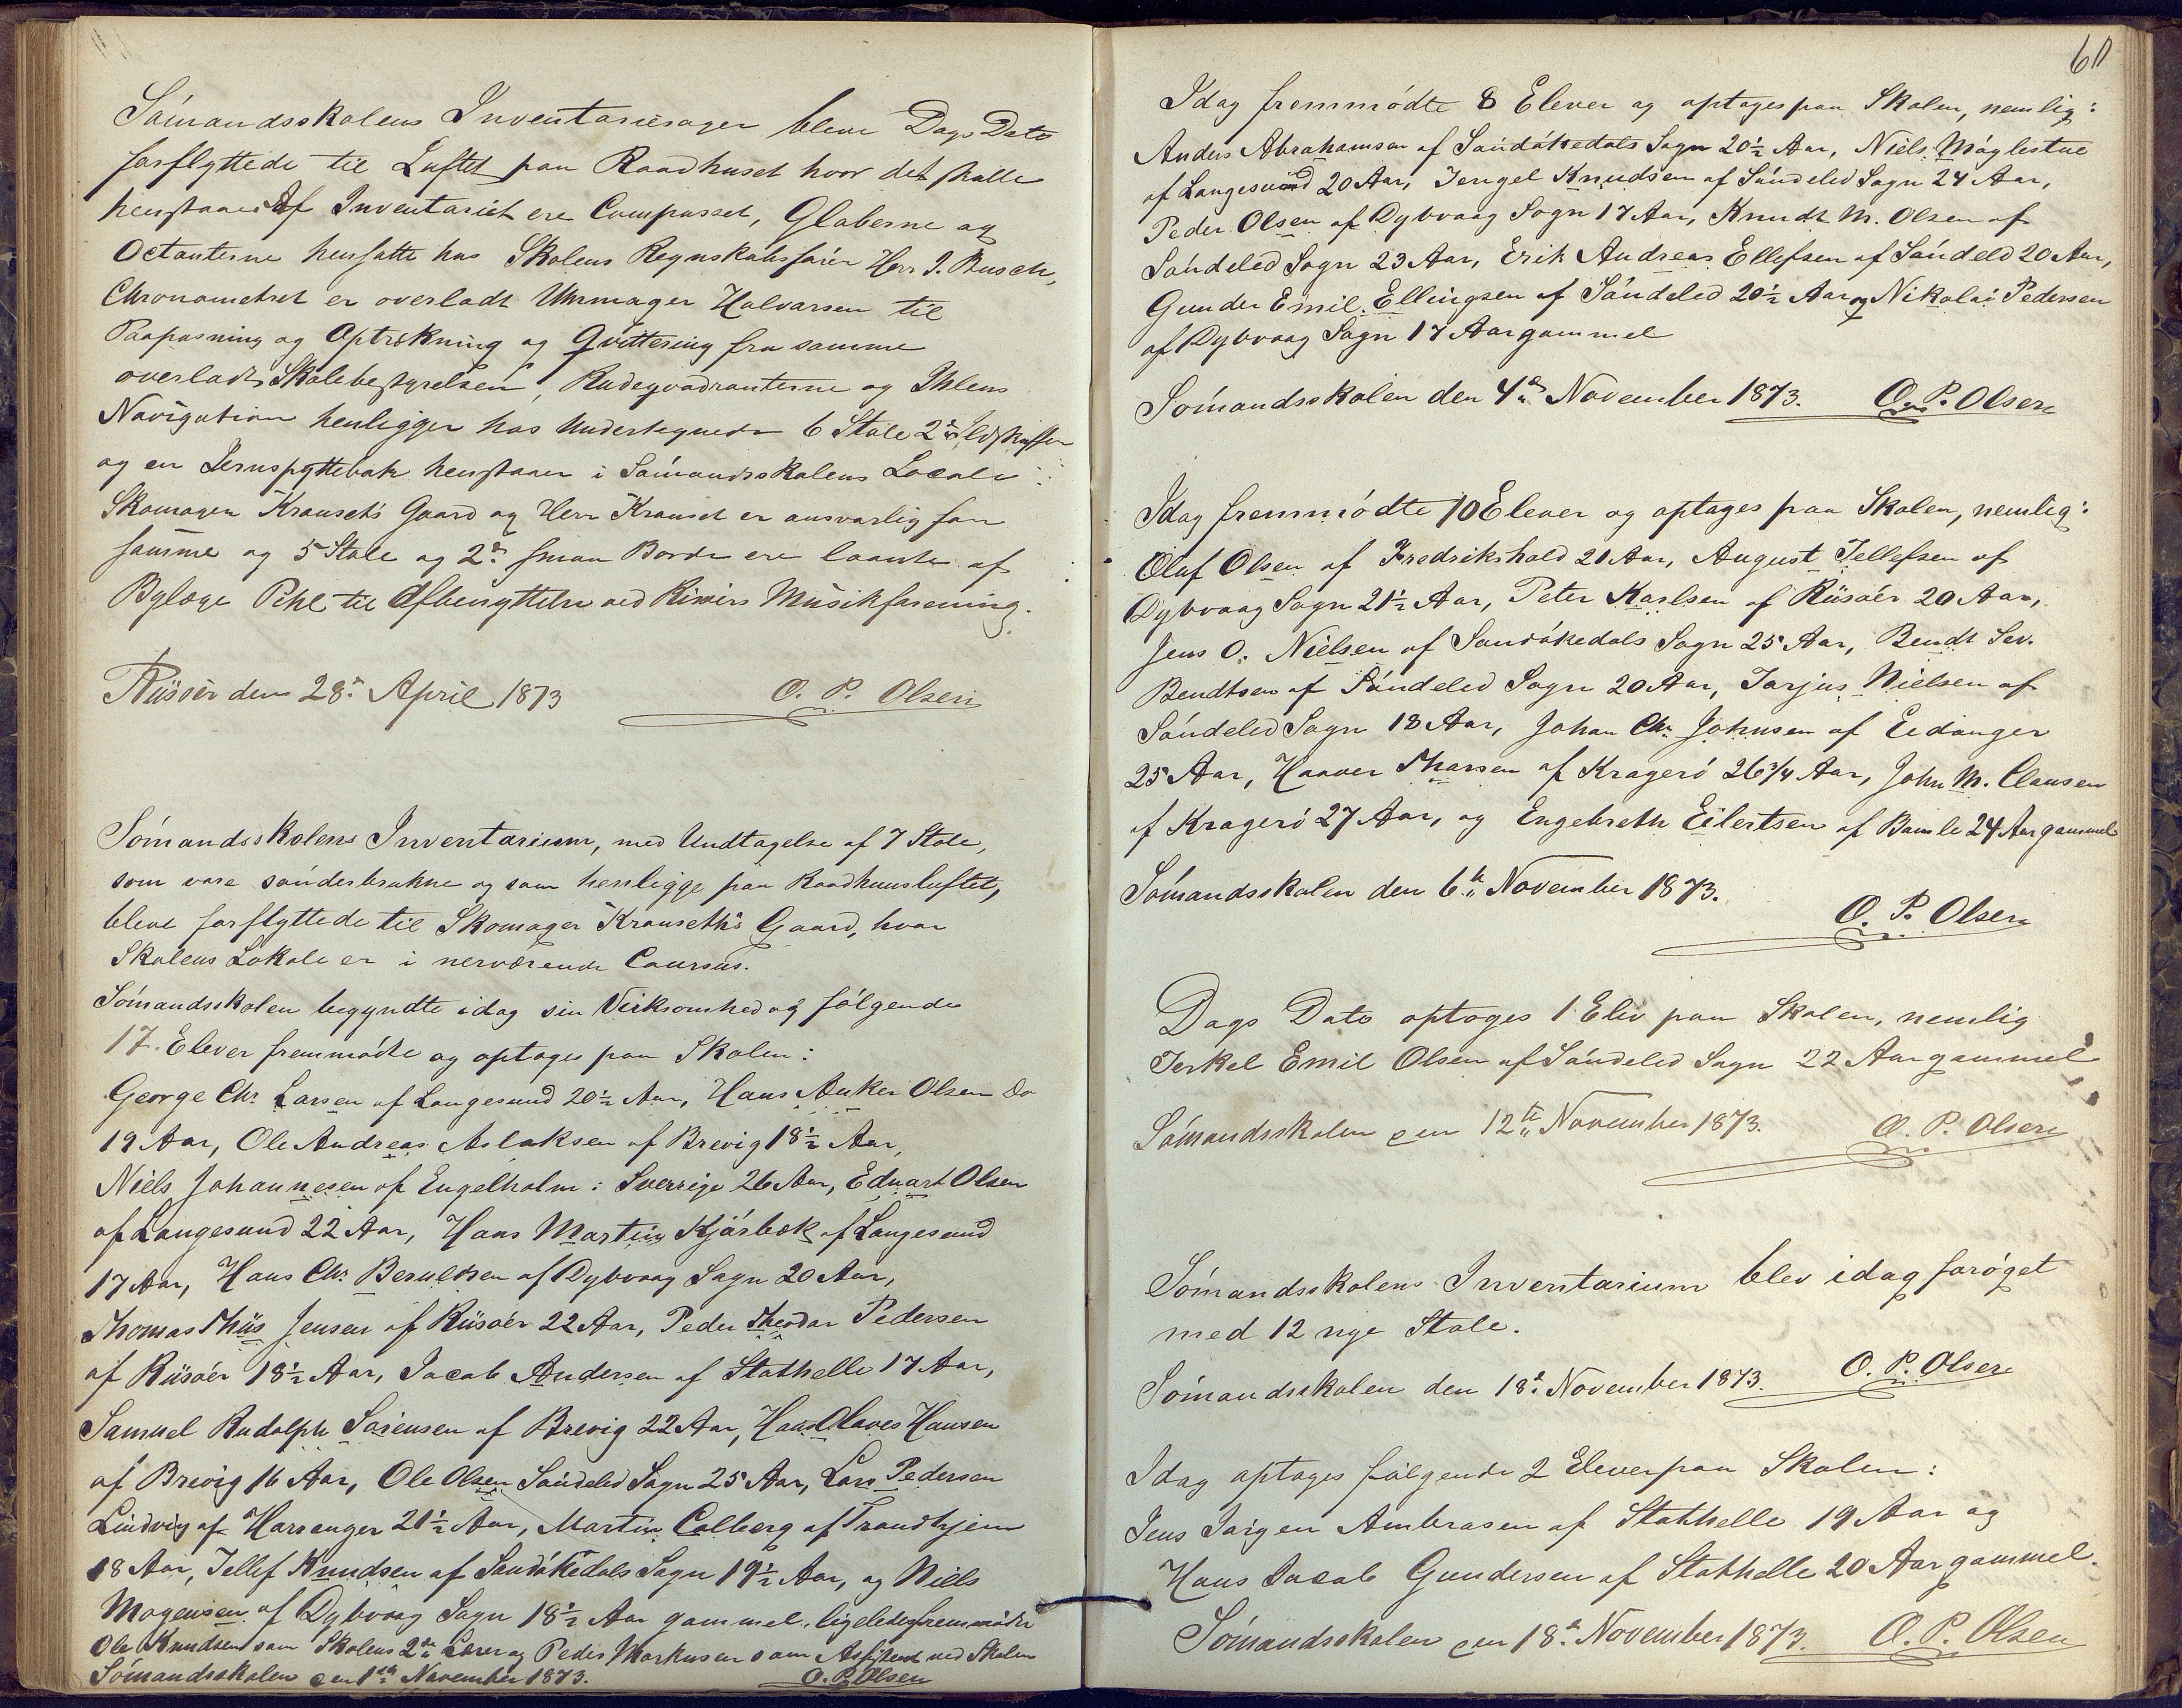 Sømandsskolens Inventariesager bleve Dags Dato
forflyttede til Loftet paa Raadhuset hvor det skulle
henstaae. Af Inventariet ere Compasset, Globerne og
Octanterne hensatte hos Skolens Regnskabsfører Herr J. Busch,
Chronometret er overladt Uhrmager Halvorsen til
Paapasning og Optrækning og Qvittering fra samme
overladt Skolebestyrelsen, Rudeqvadranterne og Ihlens
Navigation henligger hos Undertegnede 6 Stole 2de Ildskuffer
og en Jernspyttebak henstaaer i Sømandsskolens Locale
Skomager Krauseth's Gaard og Herr Krauset er ansvarlig for
samme og 5 Stole og 2de smaa Borde ere laante af
Byfoge Pihl til Afbenyttelse ved Risøers Musikforening.
Riisøer den 28de April 1873 O. P. Olsen
Sømandsskolens Inventarium, med Undtagelse af 7 Stole,
som vare sønderbrukne og som henligge paa Raadhuusloftet,
bleve forflyttede til Skomager Krauseth's Gaard, hvor
Skolens Lokale er i nerværende Coursus.
Sømandsskolen begyndte idag sin Virksomhed og følgende
17 Elever fremmødte og optoges paa Skolen:
George Chr. Larsen af Langesund 20½ Aar, Hans Anker Olsen Do
19 Aar, Ole Andreas Aslaksen af Brevig 18½ Aar,
Niels Johannesen af Engelholm i Sverrige 26 Aar, Eduart Olsen
af Langesund 22 Aar, Hans Martin Kjørbek af Langesund
17 Aar, Hans Chr. Beruldsen af Dybvaag Sogn 20 Aar,
Thomas Thiis Jensen af Riisøer 22 Aar, Peder Theodor Pedersen
af Riisøer 18½ Aar, Jacob Andersen af Stathelle 17 Aar,
Samuel Rudolph Sørensen af Brevig 22 Aar, Hans Olaves Hansen
af Brevig 16 Aar, Ole Olsen Søndeled Sogn 25 Aar, Lars Pedersen
Lindvig af Harranger 21½ Aar, Martin Colberg af Trondhjem
18 Aar, Tellef Knudsen af Sandøkedals Sogn 19½ Aar, og Niels
Mogensen af Dybvaag Sogn 18½ Aar gammel, ligeledes fremmødte
Ole Knudsen som Skolens 2den Lærer og Peder Markusen som Assistent ved Skolen
Sømandsskolen den 1ste November 1873. O. P. Olsen
60
Idag fremmødte 8 Elever og optoges paa Skolen, nemlig:
Anders Abrahamsen af Sandøkedals Sogn 20½ Aar, Niels Møglestue
af Langesund 20 Aar, Jengel Knudsen af Søndeled Sogn 24 Aar,
Peder Olsen af Dybvaag Sogn 17 Aar, Knudt M. Olsen af
Søndeled Sogn 23 Aar, Erik Andreas Ellefsen af Søndeled 20 Aar,
Gunder Emil Ellingsen af Søndeled 20½ Aar og Nikolai Pedersen
af Dybvaag Sogn 17 Aar gammel
Sømandsskolen den 4de November 1873. O. P. Olsen
Idag fremmødte 10 Elever og optoges paa Skolen, nemlig:
Oluf Olsen af Fredrikshald 21 Aar, August Tellefsen af
Dybvaag Sogn 21½ Aar, Peter Karlsen af Riisøer 20 Aar,
Jens O. Nielsen af Sandøkedals Sogn 25 Aar, Bendt Sev.
Bendtsen af Søndeled Sogn 20 Aar, Tarjus Nielsen af
Søndeled Sogn 18 Aar, Johan Chr. Johnsen af Eidanger
25 Aar, Haaver Thorsen af Kragerø 26 3/4 Aar, John M. Clausen
af Kragerø 27 Aar, og Engebreth Eilertsen af Bamle 24 Aar gammel
Sømandsskolen den 6te November 1873.
O. P. Olsen
Dags Dato optoges 1 Elev paa Skolen, nemlig
Terkel Emil Olsen af Søndeled Sogn 22 Aar gammel
Sømandsskolen den 12te November 1873. O. P. Olsen
Sømandsskolens Inventarium blev idag forøget
med 12 nye Stole.
Sømandsskolen den 18de November 1873. O. P. Olsen
Idag optoges følgende 2 Elever paa Skolen:
Jens Jørgen Ambrosen af Stathelle 19 Aar og
Hans Jacob Gundersen af Stathelle 20 Aar gammel.
Sømandsskolen den 18de November 1873. O. P. Olsen